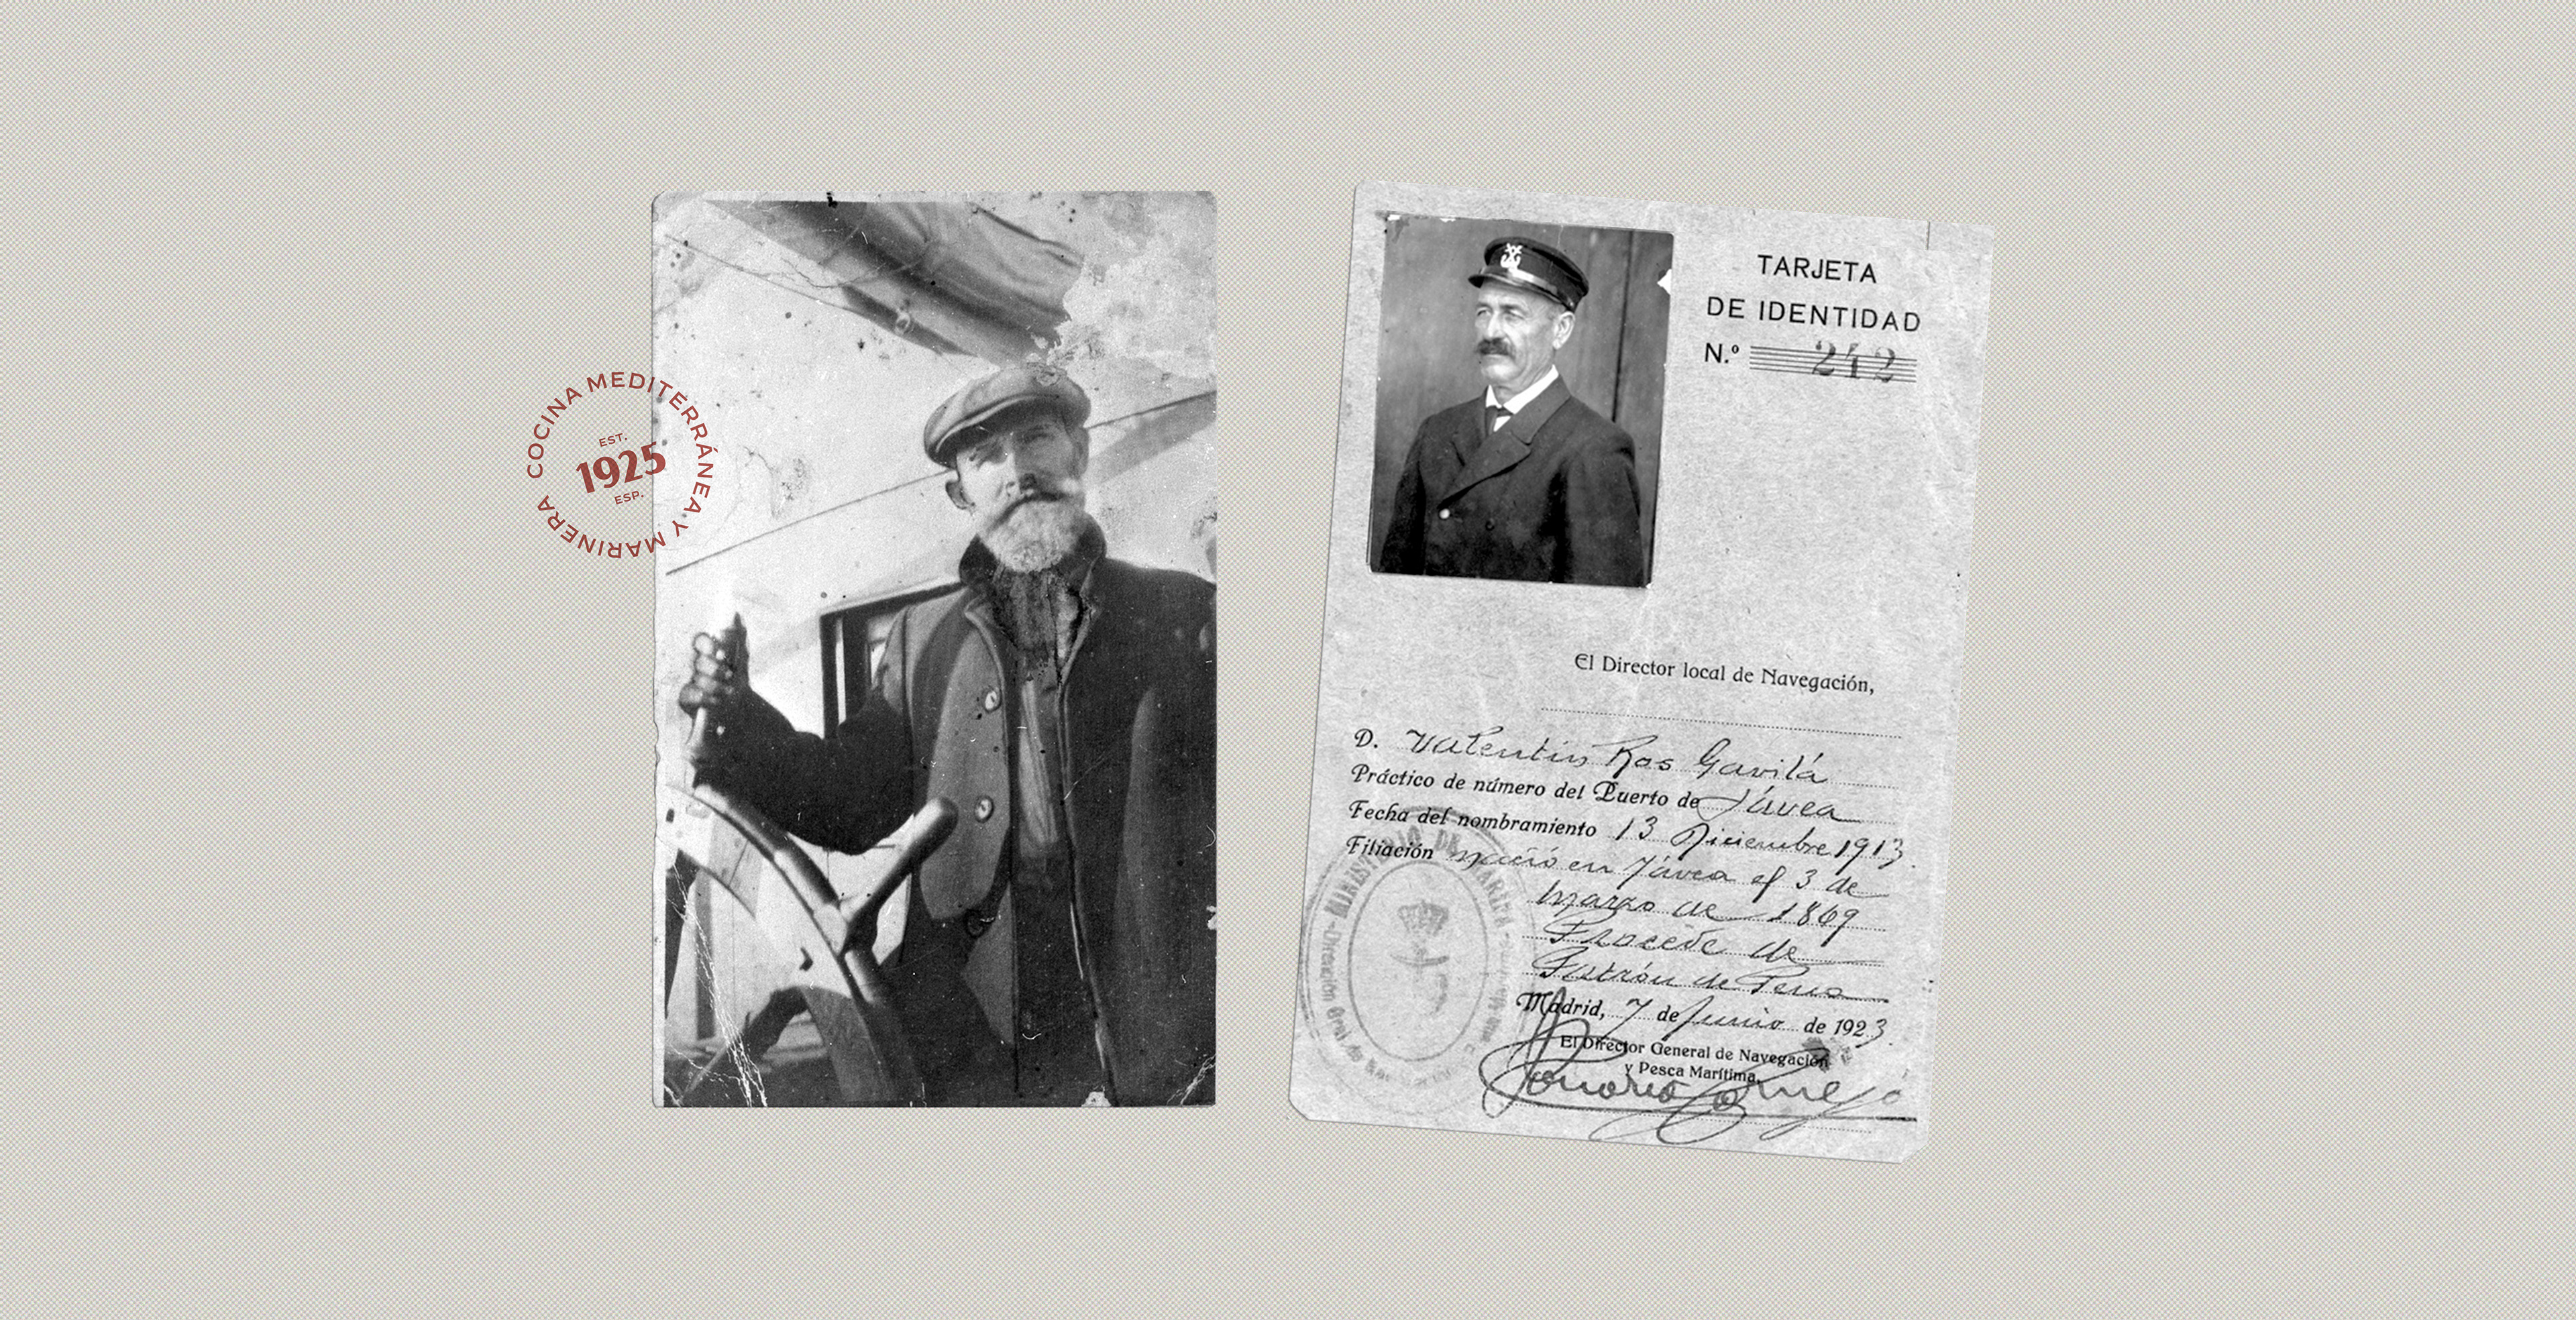 COCINA MEDITERRÁNEA Y MARINERA
EST.
1925
ESP.
TARJETA
DE IDENTIDAD
N.º 242
El Director local de Navegación,
D. Valentín Ros Gavilá
Práctico de número del Puerto de Jávea
Fecha del nombramiento 13 Diciembre 1913.
Filiación nació en Jávea el 3 de
marzo de 1869
Procede de
Patrón de
Madrid, 7 de Junio de 1923.
El Director General de Navegación
y Pesca Marítima,
Honorio Cornejo
MINISTERIO DE MARINA
Dirección Gral de